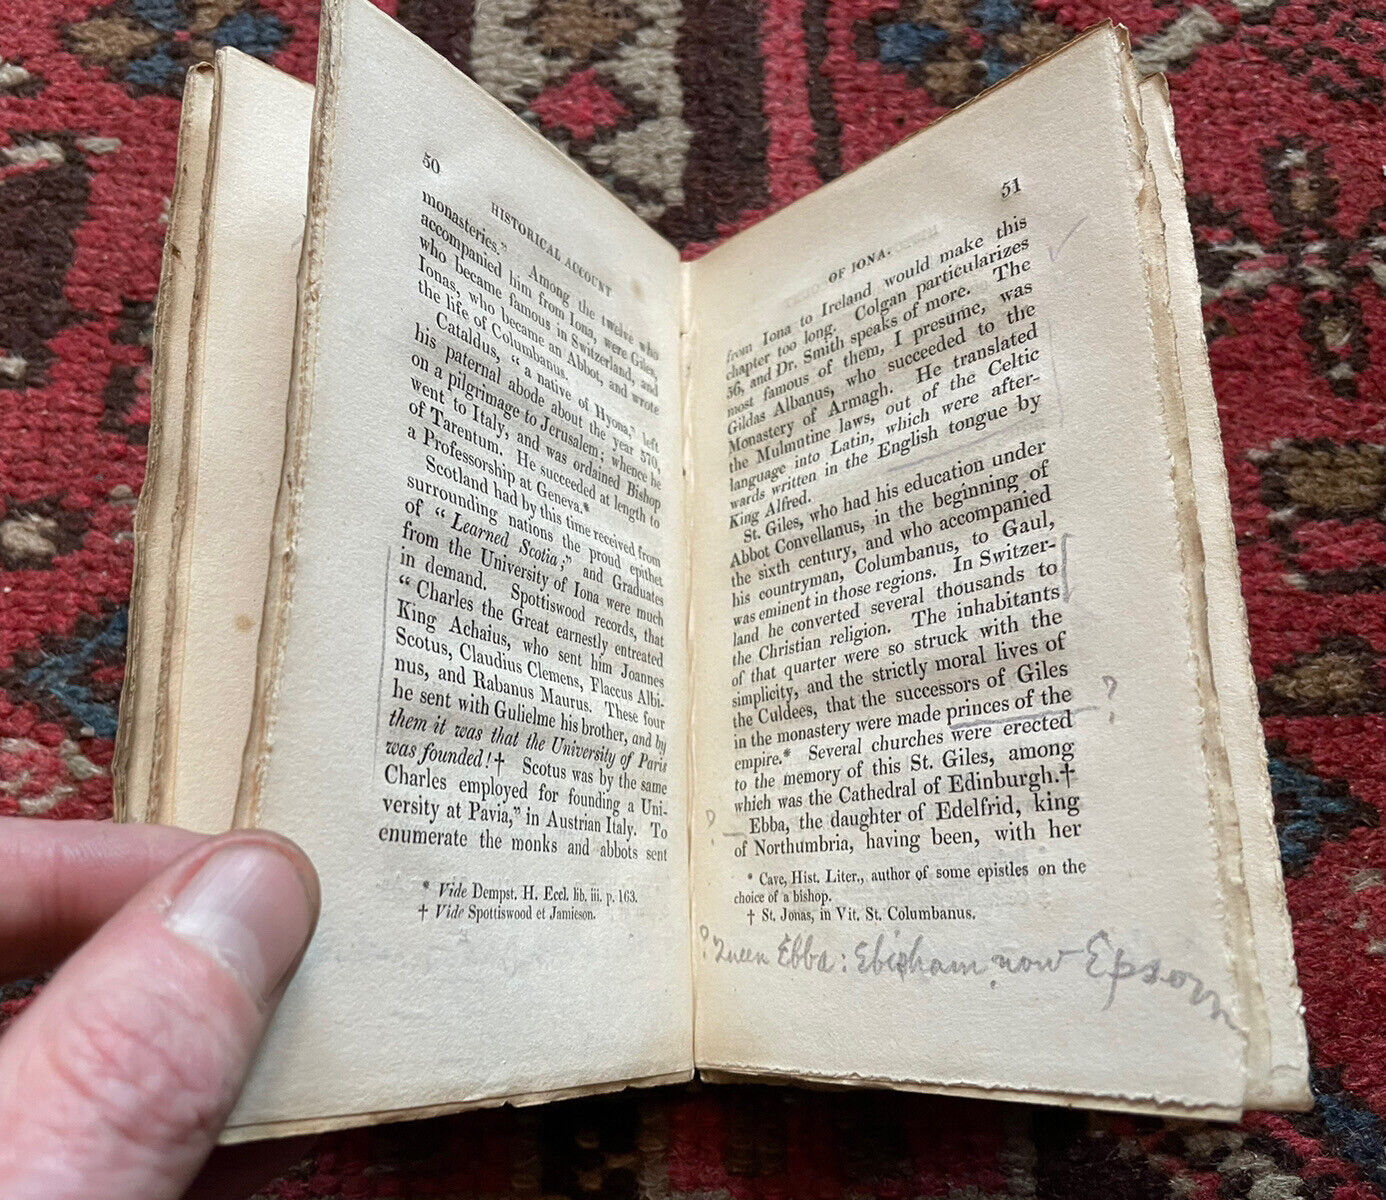 50
HISTORICAL ACCOUNT
monasteries." Among the twelve who
accompanied him from Iona, were Giles,
who became famous in Switzerland, and
Ionas, who became an Abbot, and wrote
the life of Columbanus.
Cataldus, "a native of Hyona," left
his paternal abode about the year 570,
on a pilgrimage to Jerusalem; whence he
went to Italy, and was ordained Bishop
of Tarentum. He succeeded at length to
a Professorship at Geneva.*
Scotland had by this time received from
surrounding nations the proud epithet
of "Learned Scotia;" and Graduates
from the University of Iona were much
in demand. Spottiswood records, that
"Charles the Great earnestly entreated
King Achaius, who sent him Joannes
Scotus, Claudius Clemens, Flaccus Albi-
nus, and Rabanus Maurus. These four
he sent with Gulielme his brother, and by
them it was that the University of Paris
was founded!† Scotus was by the same
Charles employed for founding a Uni-
versity at Pavia," in Austrian Italy. To
enumerate the monks and abbots sent
* Vide Dempst. H. Eccl. lib. iii. p. 163.
† Vide Spottiswood et Jamieson.
51
OF IONA.
from Iona to Ireland would make this
chapter too long. Colgan particularizes
56, and Dr. Smith speaks of more. The
most famous of them, I presume, was
Gildas Albanus, who succeeded to the
Monastery of Armagh. He translated
the Mulmutine laws, out of the Celtic
language into Latin, which were after-
wards written in the English tongue by
King Alfred.
St. Giles, who had his education under
Abbot Convellanus, in the beginning of
the sixth century, and who accompanied
his countryman, Columbanus, to Gaul,
was eminent in those regions. In Switzer-
land he converted several thousands to
the Christian religion. The inhabitants
of that quarter were so struck with the
simplicity, and the strictly moral lives of
the Culdees, that the successors of Giles
in the monastery were made princes of the ?
empire.* Several churches were erected
to the memory of this St. Giles, among
which was the Cathedral of Edinburgh.†
? Ebba, the daughter of Edelfrid, king
of Northumbria, having been, with her
* Cave, Hist. Liter., author of some epistles on the
choice of a bishop.
† St. Jonas, in Vit. St. Columbanus.
? Queen Ebba: Ebisham now Epsom